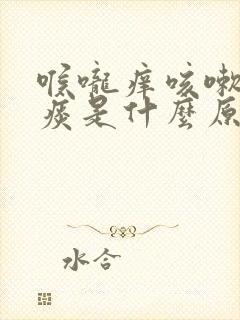 喉嚨痒咳嗽
痰是什麼原
水合